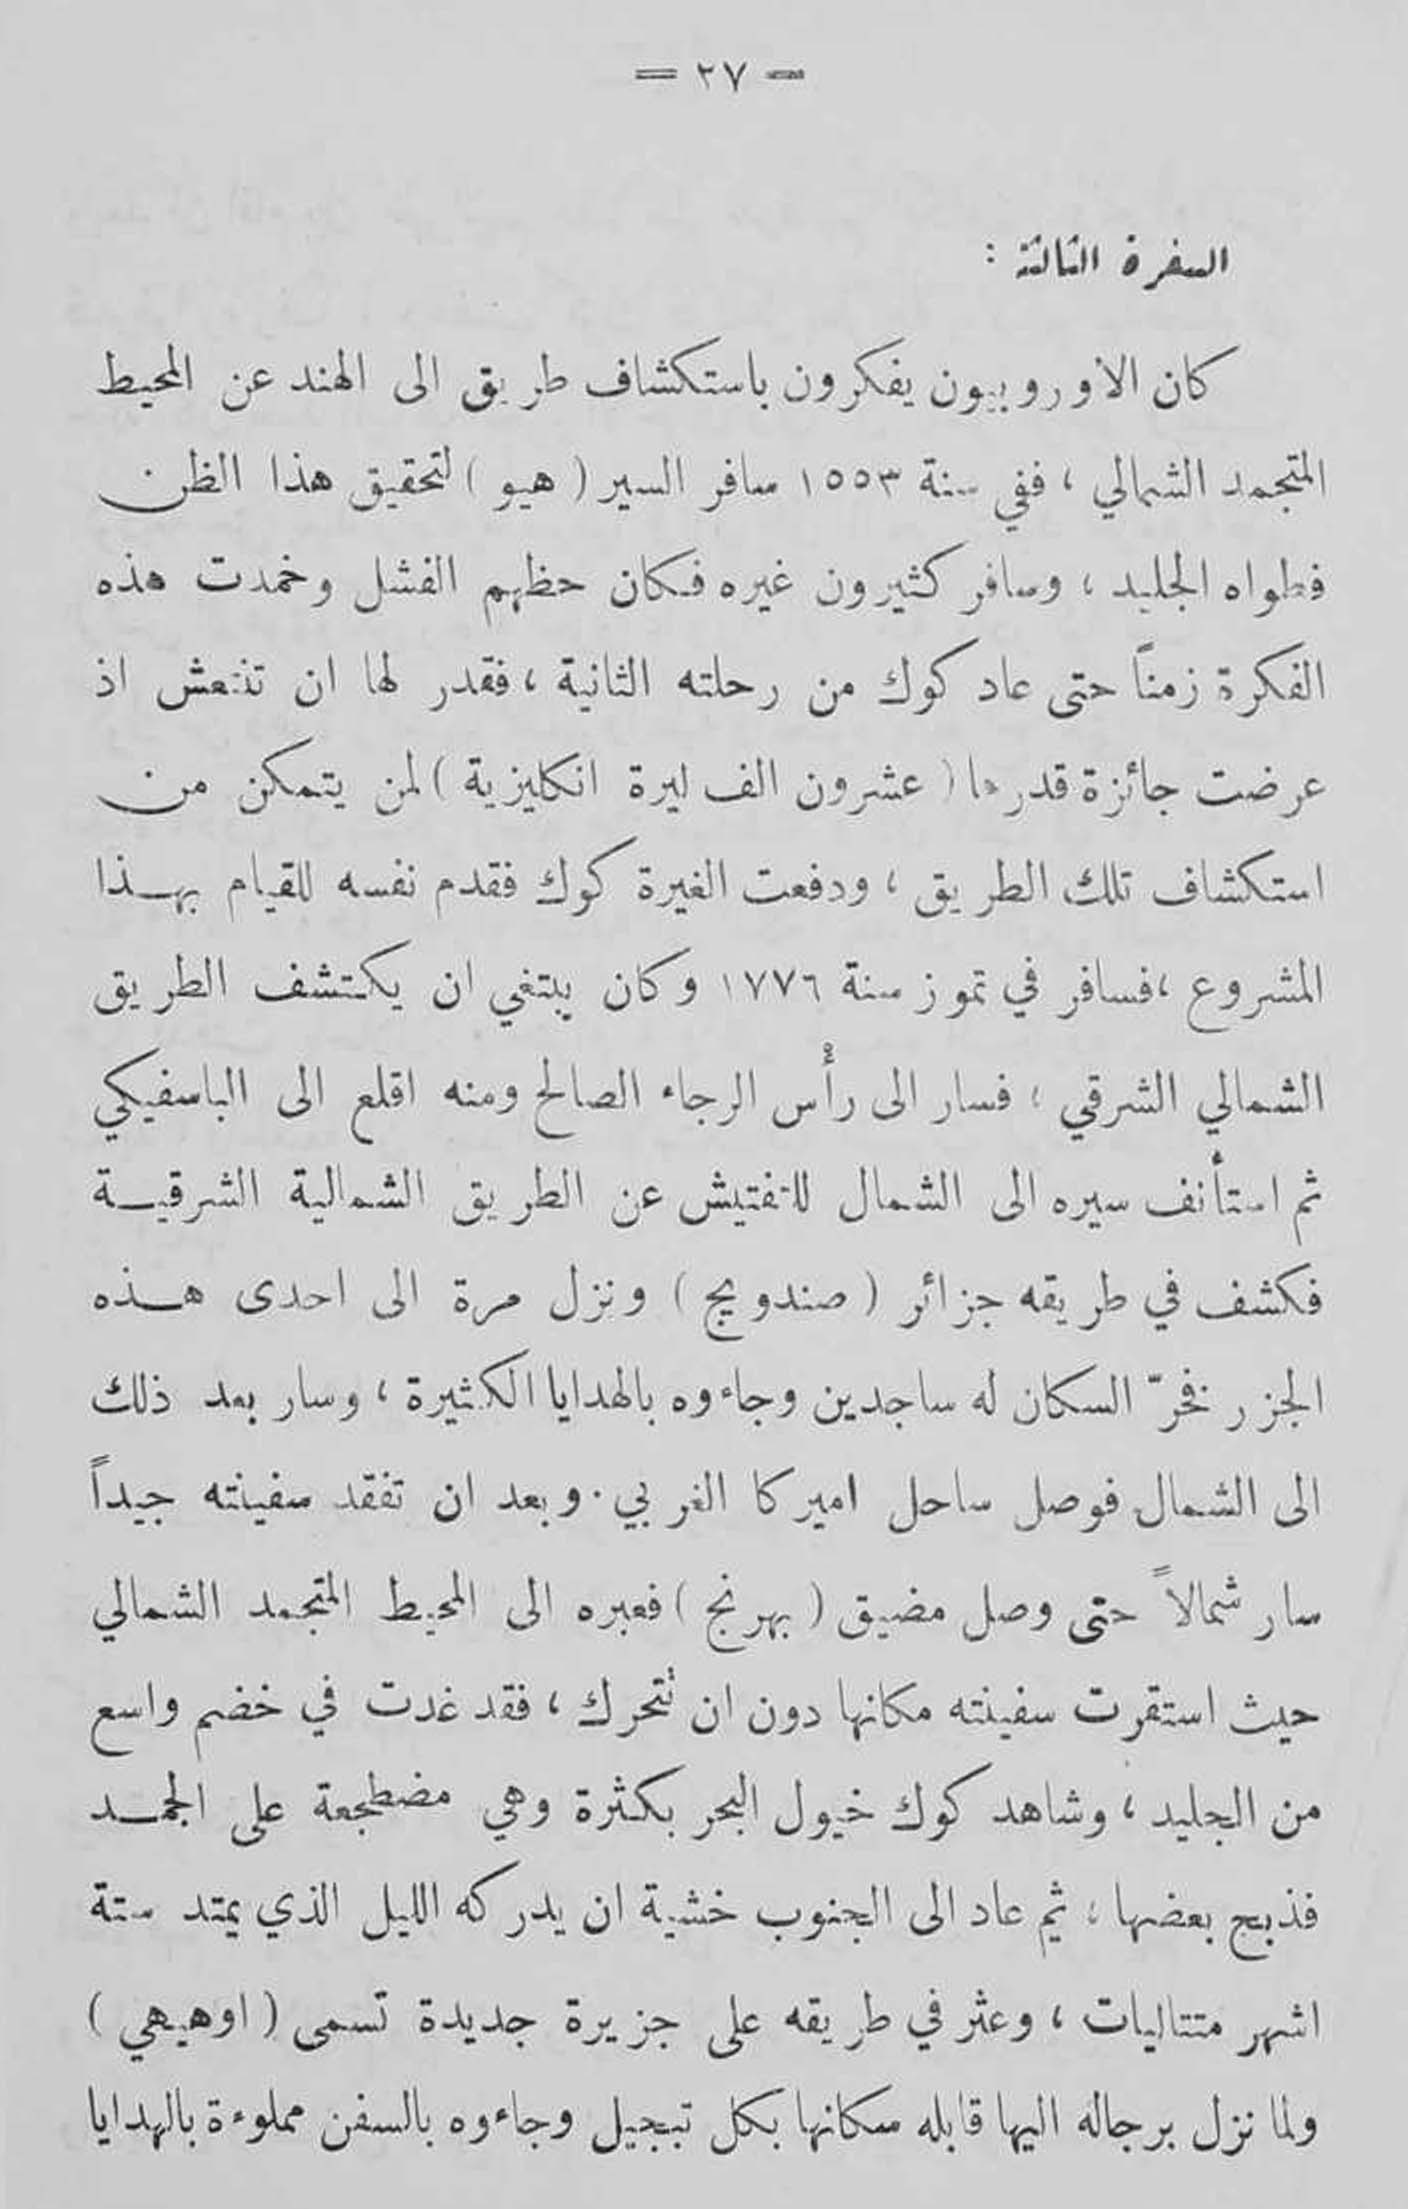 = ٢٧ =
السفرة الثالثة :
كان الاوروبيون يفكرون باستكشاف طريق الى الهند عن المحيط
المتجمد الشمالي ، ففي سنة ١٥٥٣ سافر السير ( هيو ) لتحقيق هذا الظن
فطواه الجليد ، وسافر كثيرون غيره فكان حظهم الفشل وخمدت هذه
الفكرة زمناً حتى عاد كوك من رحلته الثانية ، فقدر لها ان تنتعش اذ
عرضت جائزة قدرها ( عشرون الف ليرة انكليزية ) لمن يتمكن من
استكشاف تلك الطريق ، ودفعت الغيرة كوك فقدم نفسه للقيام بهذا
المشروع ، فسافر في تموز سنة ١٧٧٦ وكان يبتغي ان يكتشف الطريق
الشمالي الشرقي ؛ فسار الى رأس الرجاء الصالح ومنه اقلع الى الباسفيكي
ثم استأنف سيره الى الشمال للتفتيش عن الطريق الشمالية الشرقية
فكشف في طريقه جزائر ( صندويج ) ونزل مرة الى احدى هذه
الجزر فخرّ السكان له ساجدين وجاءوه بالهدايا الكثيرة ، وسار بعد ذلك
الى الشمال فوصل ساحل اميركا الغربي . وبعد ان تفقد سفينته جيداً
سار شمالاً حتى وصل مضيق ( بهرنج ) فعبره الى المحيط المتجمد الشمالي
حيث استقرت سفينته مكانها دون ان تتحرك ، فقد غدت في خضم واسع
من الجليد ، وشاهد كوك خيول البحر بكثرة وهي مضطجعة على الجمد
فذبح بعضها ، ثم عاد الى الجنوب خشية ان يدركه الليل الذي يمتد ستة
اشهر متتاليات ، وعثر في طريقه على جزيرة جديدة تسمى ( اوهيهي )
ولما نزل برجاله اليها قابله سكانها بكل تبجيل وجاءوه بالسفن مملوءة بالهدايا